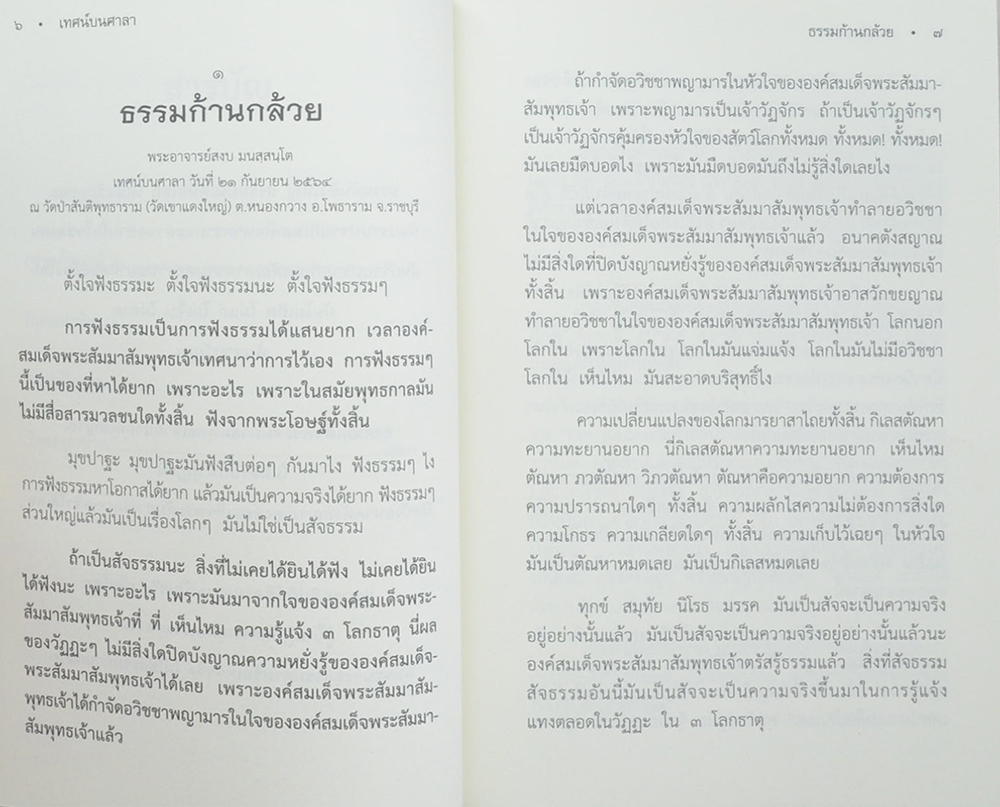 ๖ • เทศน์บนศาลา
๑
ธรรมก้านกล้วย
พระอาจารย์สงบ มนสฺสนฺโต
เทศน์บนศาลา วันที่ ๒๑ กันยายน ๒๕๖๔
ณ วัดป่าสันติพุทธาราม (วัดเขาแดงใหญ่) ต.หนองกวาง อ.โพธาราม จ.ราชบุรี
ตั้งใจฟังธรรมะ ตั้งใจฟังธรรมนะ ตั้งใจฟังธรรมๆ
การฟังธรรมเป็นการฟังธรรมได้แสนยาก เวลาองค์-
สมเด็จพระสัมมาสัมพุทธเจ้าเทศนาว่าการไว้เอง การฟังธรรมๆ
นี้เป็นของที่หาได้ยาก เพราะอะไร เพราะในสมัยพุทธกาลมัน
ไม่มีสื่อสารมวลชนใดทั้งสิ้น ฟังจากพระโอษฐ์ทั้งสิ้น
มุขปาฐะ มุขปาฐะมันฟังสืบต่อๆ กันมาไง ฟังธรรมๆ ไง
การฟังธรรมหาโอกาสได้ยาก แล้วมันเป็นความจริงได้ยาก ฟังธรรมๆ
ส่วนใหญ่แล้วมันเป็นเรื่องโลกๆ มันไม่ใช่เป็นสัจธรรม
ถ้าเป็นสัจธรรมนะ สิ่งที่ไม่เคยได้ยินได้ฟัง ไม่เคยได้ยิน
ได้ฟังนะ เพราะอะไร เพราะมันมาจากใจขององค์สมเด็จพระ-
สัมมาสัมพุทธเจ้าที่ ที่ เห็นไหม ความรู้แจ้ง ๓ โลกธาตุ นี่ผล
ของวัฏฏะๆ ไม่มีสิ่งใดปิดบังญาณความหยั่งรู้ขององค์สมเด็จ-
พระสัมมาสัมพุทธเจ้าได้เลย เพราะองค์สมเด็จพระสัมมาสัม-
พุทธเจ้าได้กำจัดอวิชชาพญามารในใจขององค์สมเด็จพระสัมมา-
สัมพุทธเจ้าแล้ว
ธรรมก้านกล้วย • ๗
ถ้ากำจัดอวิชชาพญามารในหัวใจขององค์สมเด็จพระสัมมา-
สัมพุทธเจ้า เพราะพญามารเป็นเจ้าวัฏจักร ถ้าเป็นเจ้าวัฏจักรๆ
เป็นเจ้าวัฏจักรคุ้มครองหัวใจของสัตว์โลกทั้งหมด ทั้งหมด! ทั้งหมด!
มันเลยมืดบอดไง เพราะมันมืดบอดมันถึงไม่รู้สิ่งใดเลยไง
แต่เวลาองค์สมเด็จพระสัมมาสัมพุทธเจ้าทำลายอวิชชา
ในใจขององค์สมเด็จพระสัมมาสัมพุทธเจ้าแล้ว อนาคตังสญาณ
ไม่มีสิ่งใดที่ปิดบังญาณหยั่งรู้ขององค์สมเด็จพระสัมมาสัมพุทธเจ้า
ทั้งสิ้น เพราะองค์สมเด็จพระสัมมาสัมพุทธเจ้าอาสวักขยญาณ
ทำลายอวิชชาในใจขององค์สมเด็จพระสัมมาสัมพุทธเจ้า โลกนอก
โลกใน เพราะโลกใน โลกในมันแจ่มแจ้ง โลกในมันไม่มีอวิชชา
โลกใน เห็นไหม มันสะอาดบริสุทธิ์ไง
ความเปลี่ยนแปลงของโลกมารยาสาไถยทั้งสิ้น กิเลสตัณหา
ความทะยานอยาก นี่กิเลสตัณหาความทะยานอยาก เห็นไหม
ตัณหา ภวตัณหา วิภวตัณหา ตัณหาคือความอยาก ความต้องการ
ความปรารถนาใดๆ ทั้งสิ้น ความผลักไสความไม่ต้องการสิ่งใด
ความโกรธ ความเกลียดใดๆ ทั้งสิ้น ความเก็บไว้เฉยๆ ในหัวใจ
มันเป็นตัณหาหมดเลย มันเป็นกิเลสหมดเลย
ทุกข์ สมุทัย นิโรธ มรรค มันเป็นสัจจะเป็นความจริง
อยู่อย่างนั้นแล้ว มันเป็นสัจจะเป็นความจริงอยู่อย่างนั้นแล้วนะ
องค์สมเด็จพระสัมมาสัมพุทธเจ้าตรัสรู้ธรรมแล้ว สิ่งที่สัจธรรม
สัจธรรมอันนี้มันเป็นสัจจะเป็นความจริงขึ้นมาในการรู้แจ้ง
แทงตลอดในวัฏฏะ ใน ๓ โลกธาตุ